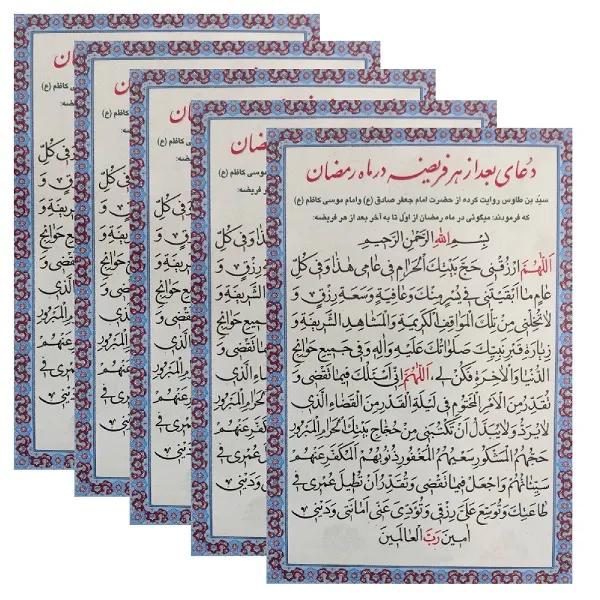 دعای بعد از هر فریضه در ماه رمضان
سیّد بن طاوس روایت کرده از حضرت امام جعفر صادق (ع) وامام موسی کاظم (ع)
که فرمودند: میگوئی در ماه رمضان از اوّل تا به آخر بعد از هر فریضه:
بِسْمِ اللهِ الرَّحْمنِ الرَّحیمِ
اَللّهُمَّ ارْزُقْنی حَجَّ بَیْتِكَ الْحَرامِ فی عامی هذا وَفی کُلِّ
عامٍ ما اَبْقَیْتَنی فی یُسْرٍ مِنْكَ وَعافِیَةٍ وَسَعَةِ رِزْقٍ وَ
لا تُخْلِنی مِنْ تِلْكَ الْمَواقِفِ الْکَریمَةِ وَالْمَشاهِدِ الشَّریفَةِ وَ
زِیارَةِ قَبْرِ نَبِیِّكَ صَلَواتُكَ عَلَیْهِ وَالِهِ وَفی جَمیعِ حَوائِجِ
الدُّنْیا وَالْاخِرَةِ فَکُنْ لی، اَللّهُمَّ اِنّی اَسْئَلُكَ فیما تَقْضی وَ
تُقَدِّرُ مِنَ الْاَمْرِ الْمَحْتُومِ فی لَیْلَةِ الْقَدْرِ مِنَ الْقَضاءِ الَّذی
لا یُرَدُّ وَلا یُبَدَّلُ اَنْ تَکْتُبَنی مِنْ حُجّاجِ بَیْتِكَ الْحَرامِ الْمَبْرُورِ
حَجُّهُمُ الْمَشْکُورِ سَعْیُهُمُ الْمَغْفُورِ ذُنُوبُهُمُ الْمُکَفَّرِ عَنْهُمْ
سَیِّئاتُهُمْ وَاجْعَلْ فیما تَقْضی وَتُقَدِّرُ اَنْ تُطیلَ عُمْری فی
طاعَتِكَ وَتُوَسِّعَ عَلَیَّ رِزْقی وَتُؤَدِّیَ عَنّی اَمانَتی وَدَیْنی
امینَ رَبَّ الْعالَمینَ